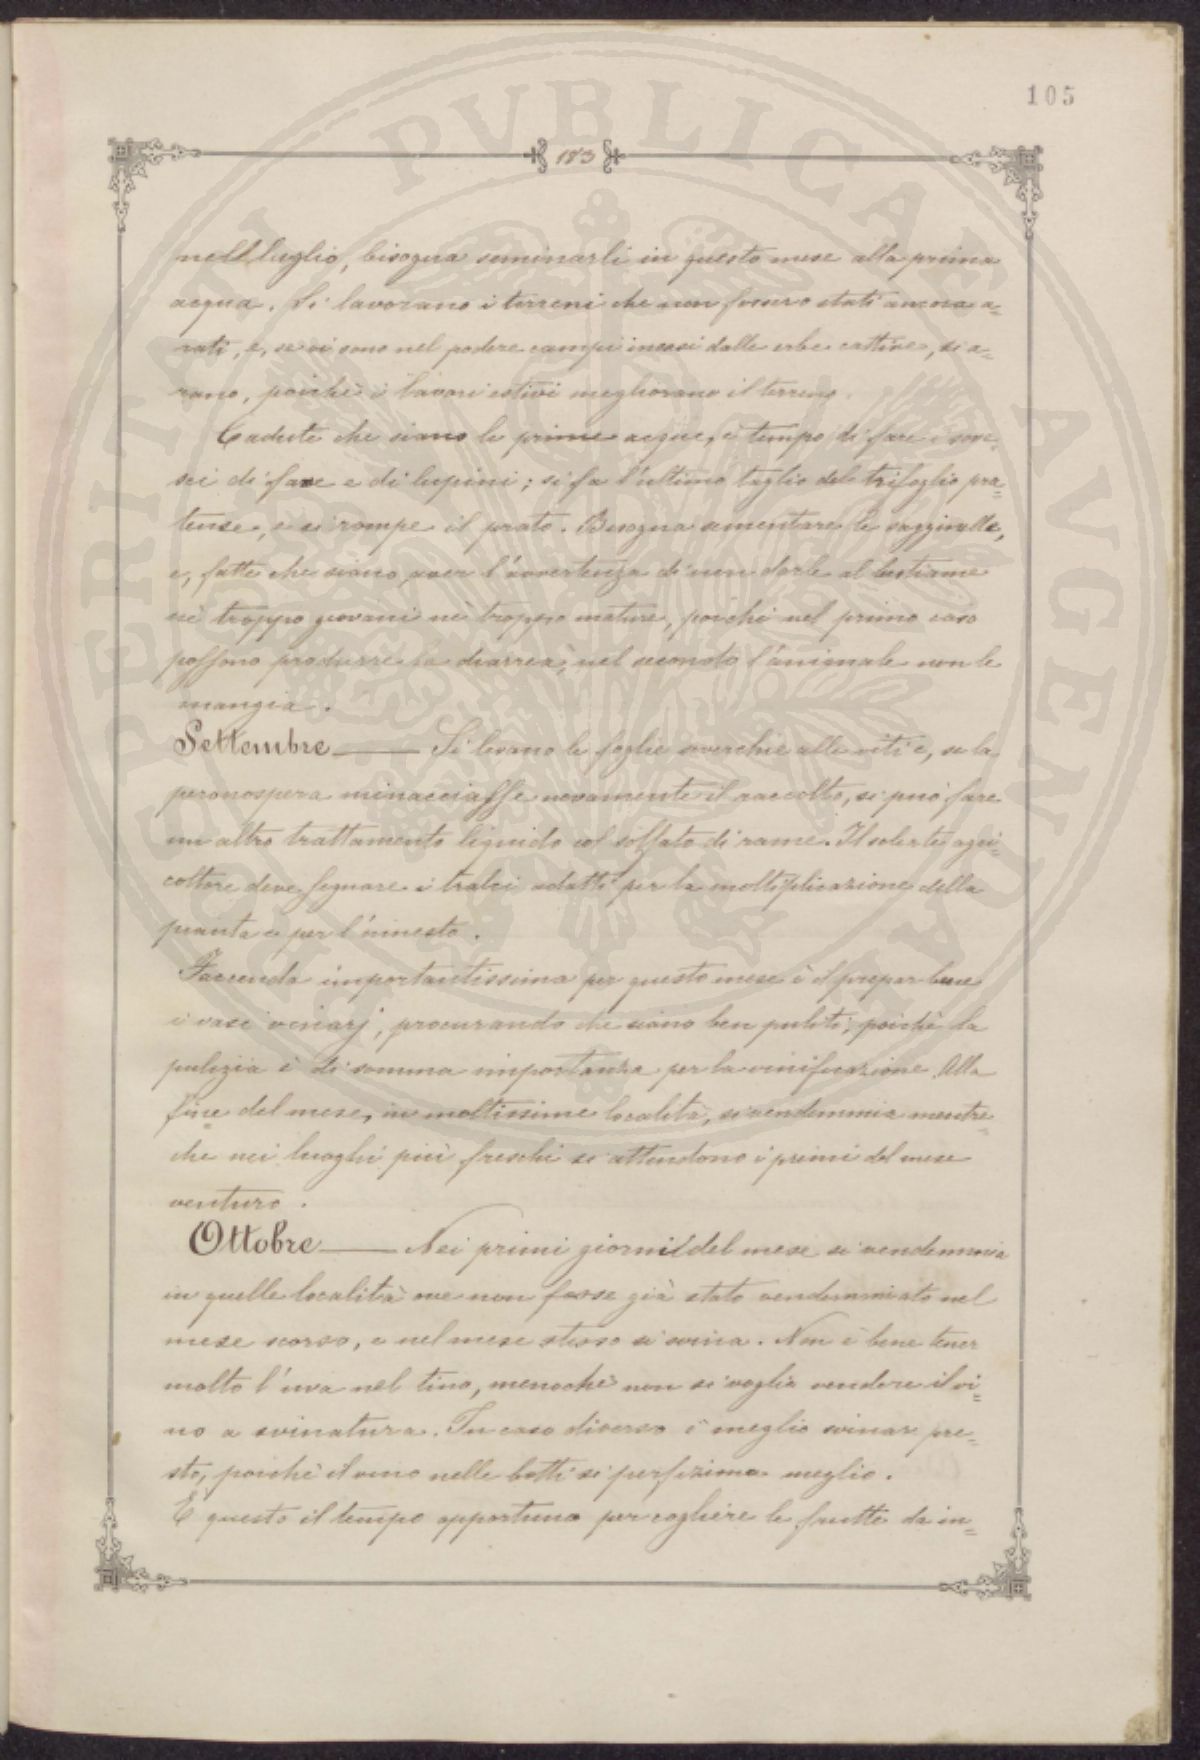 105
183
nell luglio, bisogna seminarli in questo mese alla prima
acqua. Si lavorano i terreni che non fossero stati ancora a=
rati, e, se vi sono nel podere campi invasi dalle erbe cattive, si a=
rano, poichè i lavori estivi megliorano il terreno.
Cadute che siano le prime acque, è tempo di fare i sove=
sci di fave e di lupini; si fa l'ultimo taglio del trifoglio pra=
tense, e si rompe il prato. Bisogna sementare le sagginelle,
e, fatte che siano, aver l'avvertenza di non darle al bestiame
nè troppo giovani nè troppo mature, poichè nel primo caso
possono produrre la diarrea, nel secondo l'animale non le
mangia.
Settembre — Si levano le foglie soverchie alle viti e, se la
peronospera minacciasse novamente il raccolto, si può fare
un altro trattamento liquido col solfato di rame. Il solerte agri=
coltore deve segnare i tralci adatti per la moltiplicazione della
pianta e per l'innesto.
Faccenda importantissima per questo mese è il prepar bene
i vasi vinarj, procurando che siano ben puliti, poichè la
pulizia è di somma importanza per la vinificazione. Alla
fine del mese, in moltissime località, si vendemmia mentre=
che nei luoghi più freschi si attendono i primi del mese
venturo.
Ottobre — Nei primi giorni del mese si vendemmia
in quelle località ove non fosse già stato vendemmiato nel
mese scorso, e nel mese stesso si svina. Non è bene tener
molto l'uva nel tino, menochè non si voglia vendere il vi=
no a svinatura. In caso diverso è meglio svinar pre=
sto, poichè il vino nelle botti si perfeziona meglio.
È questo il tempo opportuno per cogliere le frutte da in=